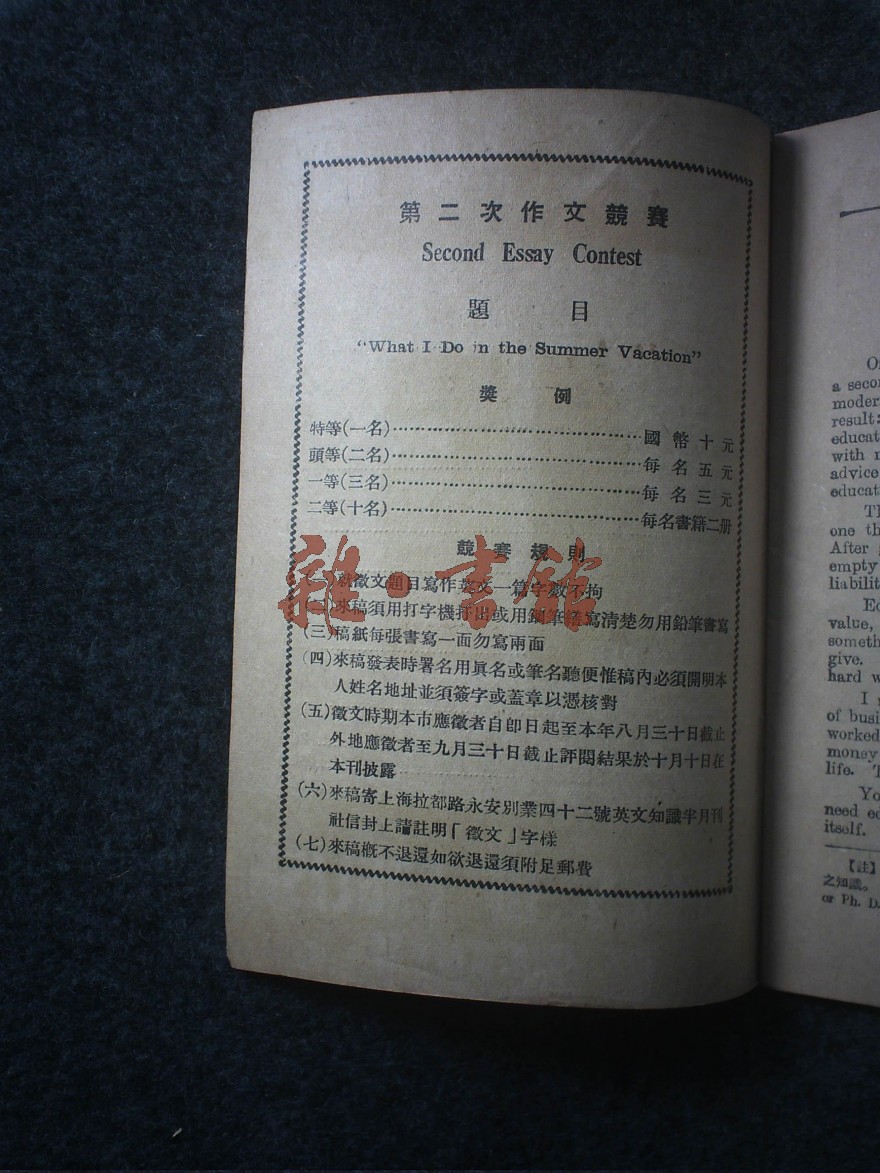 第二次作文競賽
Second Essay Contest
題目
“What I Do in the Summer Vacation”
獎例
特等(一名)……………………………國幣十元
頭等(二名)……………………………每名五元
一等(三名)……………………………每名三元
二等(十名)……………………………每名書籍二册
競賽規則
(一)就徵文題目寫作英文一篇字數不拘
(二)來稿須用打字機打出或用鋼筆繕寫清楚勿用鉛筆書寫
(三)稿紙每張書寫一面勿寫兩面
(四)來稿發表時署名用眞名或筆名聽便惟稿內必須開明本
人姓名地址並須簽字或蓋章以憑核對
(五)徵文時期本市應徵者自卽日起至本年八月三十日截止
外地應徵者至九月三十日截止評閱結果於十月十日在
本刊披露
(六)來稿寄上海拉都路永安別業四十二號英文知識半月刊
社信封上請註明「徵文」字樣
(七)來稿槪不退還如欲退還須附足郵費
雜·書館
a secon
moder
result:
educat
with
advice
educat
one th
After
empty
liabilit
value,
someth
give.
hard w
I
of busi
worked
money
life.
Yo
need ed
itself.
【註】
之知識。
or Ph. D.